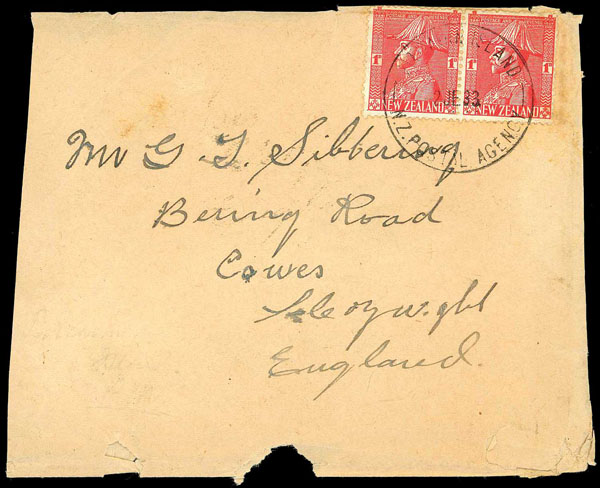 1D 1D
NEW ZEALAND NEW ZEALAND
ISLAND
JE 33
N.Z. POSTAL AGENCY
Mr G. T. Sibbering
Bering Road
Cowes
Isle of Wight
England.